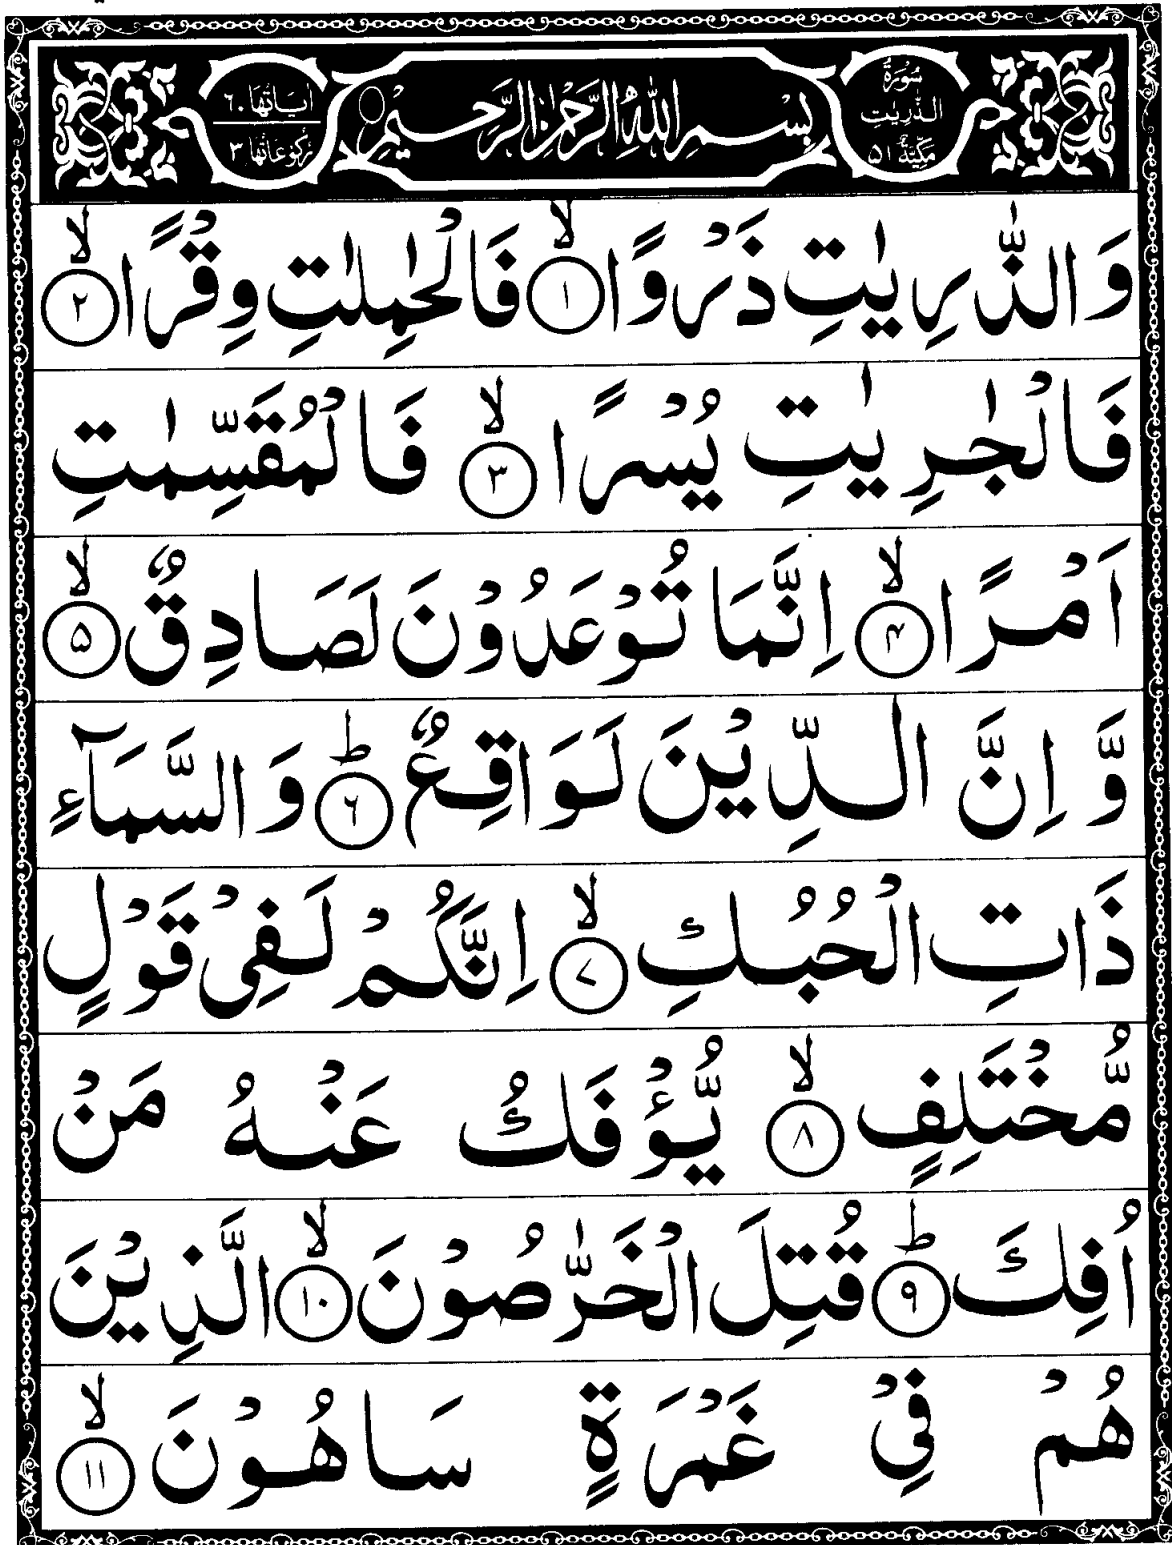 سُوْرَةُ
الذّٰرِيٰتِ
مَكِّيَّةٌ ٥١
بِسْمِ اللّٰهِ الرَّحْمٰنِ الرَّحِيْمِ
اٰيَاتُهَا ٦٠
رُكُوْعَاتُهَا ٣
وَالذّٰرِيٰتِ ذَرْوًا ۙ‏﴿۱﴾ فَالْحٰمِلٰتِ وِقْرًا ۙ‏﴿۲﴾
فَالْجٰرِيٰتِ يُسْرًا ۙ‏﴿۳﴾ فَالْمُقَسِّمٰتِ
اَمْرًا ۙ‏﴿۴﴾ اِنَّمَا تُوْعَدُوْنَ لَصَادِقٌ ۙ‏﴿۵﴾
وَّ اِنَّ الدِّيْنَ لَوَاقِعٌ ؕ‏﴿۶﴾ وَ السَّمَآءِ
ذَاتِ الْحُبُكِ ۙ‏﴿۷﴾ اِنَّكُمْ لَفِيْ قَوْلٍ
مُّخْتَلِفٍ ۙ‏﴿۸﴾ يُّؤْفَكُ عَنْهُ مَنْ
اُفِكَ ؕ‏﴿۹﴾ قُتِلَ الْخَرّٰصُوْنَ ۙ‏﴿۱۰﴾ الَّذِيْنَ
هُمْ فِيْ غَمْرَةٍ سَاهُوْنَ ۙ‏﴿۱۱﴾